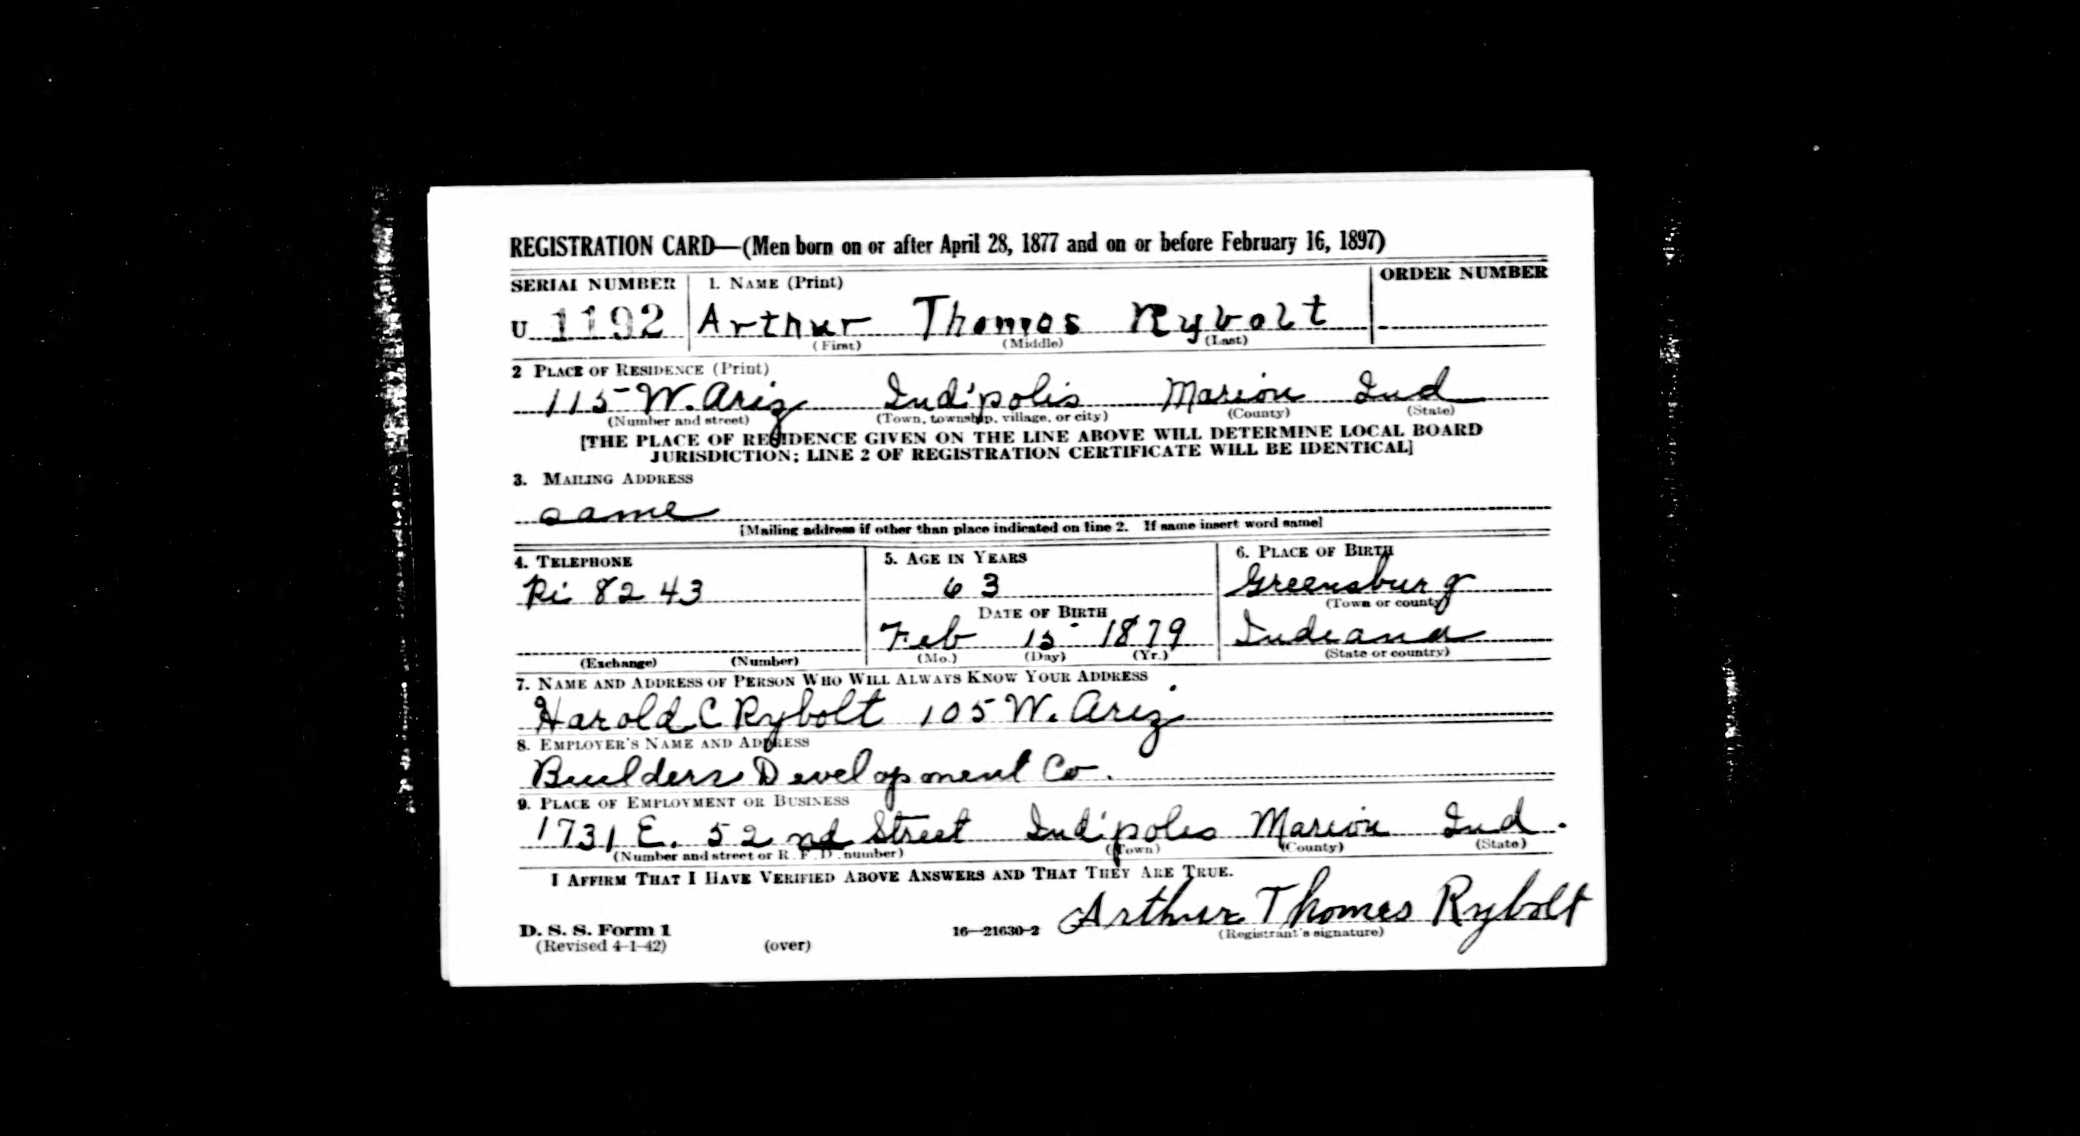 REGISTRATION CARD—(Men born on or after April 28, 1877 and on or before February 16, 1897)
SERIAL NUMBER 1. NAME (Print) ORDER NUMBER
U 1192 Arthur Thomas Rybolt
(First) (Middle) (Last)
2 PLACE OF RESIDENCE (Print)
115 W. Ariz Ind'polis Marion Ind
(Number and street) (Town, township, village, or city) (County) (State)
[THE PLACE OF RESIDENCE GIVEN ON THE LINE ABOVE WILL DETERMINE LOCAL BOARD
JURISDICTION; LINE 2 OF REGISTRATION CERTIFICATE WILL BE IDENTICAL]
3. MAILING ADDRESS
same
[Mailing address if other than place indicated on line 2. If same insert word same]
4. TELEPHONE 5. AGE IN YEARS 6. PLACE OF BIRTH
Ri 8243 63 Greensburg
(Town or county)
DATE OF BIRTH
Feb 15 1879 Indiana
(Exchange) (Number) (Mo.) (Day) (Yr.) (State or country)
7. NAME AND ADDRESS OF PERSON WHO WILL ALWAYS KNOW YOUR ADDRESS
Harold C Rybolt 105 W. Ariz.
8. EMPLOYER'S NAME AND ADDRESS
Builders Development Co.
9. PLACE OF EMPLOYMENT OR BUSINESS
1731 E. 52nd Street Ind'polis Marion Ind.
(Number and street or R. F. D. number) (Town) (County) (State)
I AFFIRM THAT I HAVE VERIFIED ABOVE ANSWERS AND THAT THEY ARE TRUE.
Arthur Thomas Rybolt
D. S. S. Form 1 16—21630-2 (Registrant's signature)
(Revised 4-1-42) (over)